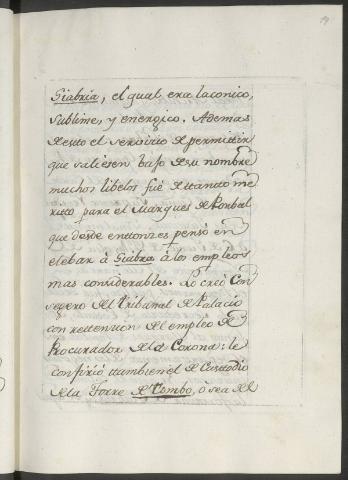 Giabria, el qual era laconico,
sublime, y energico. Ademas
de esto el servicio de permittir
que saliesen bajo de su nombre
muchos libelos fué de ttanto me
ritto para el Marques de Ponbal
que desde enttonzes pensó en
elebar à Giabra à los empleos
mas considerables. Lo creó Con
segero del Tribunal de Palacio
con rettencion del empleo de
Procurador de la Corona: le
confirió ttambien el de Custodio
de la Torre de Tombo, ò sea del